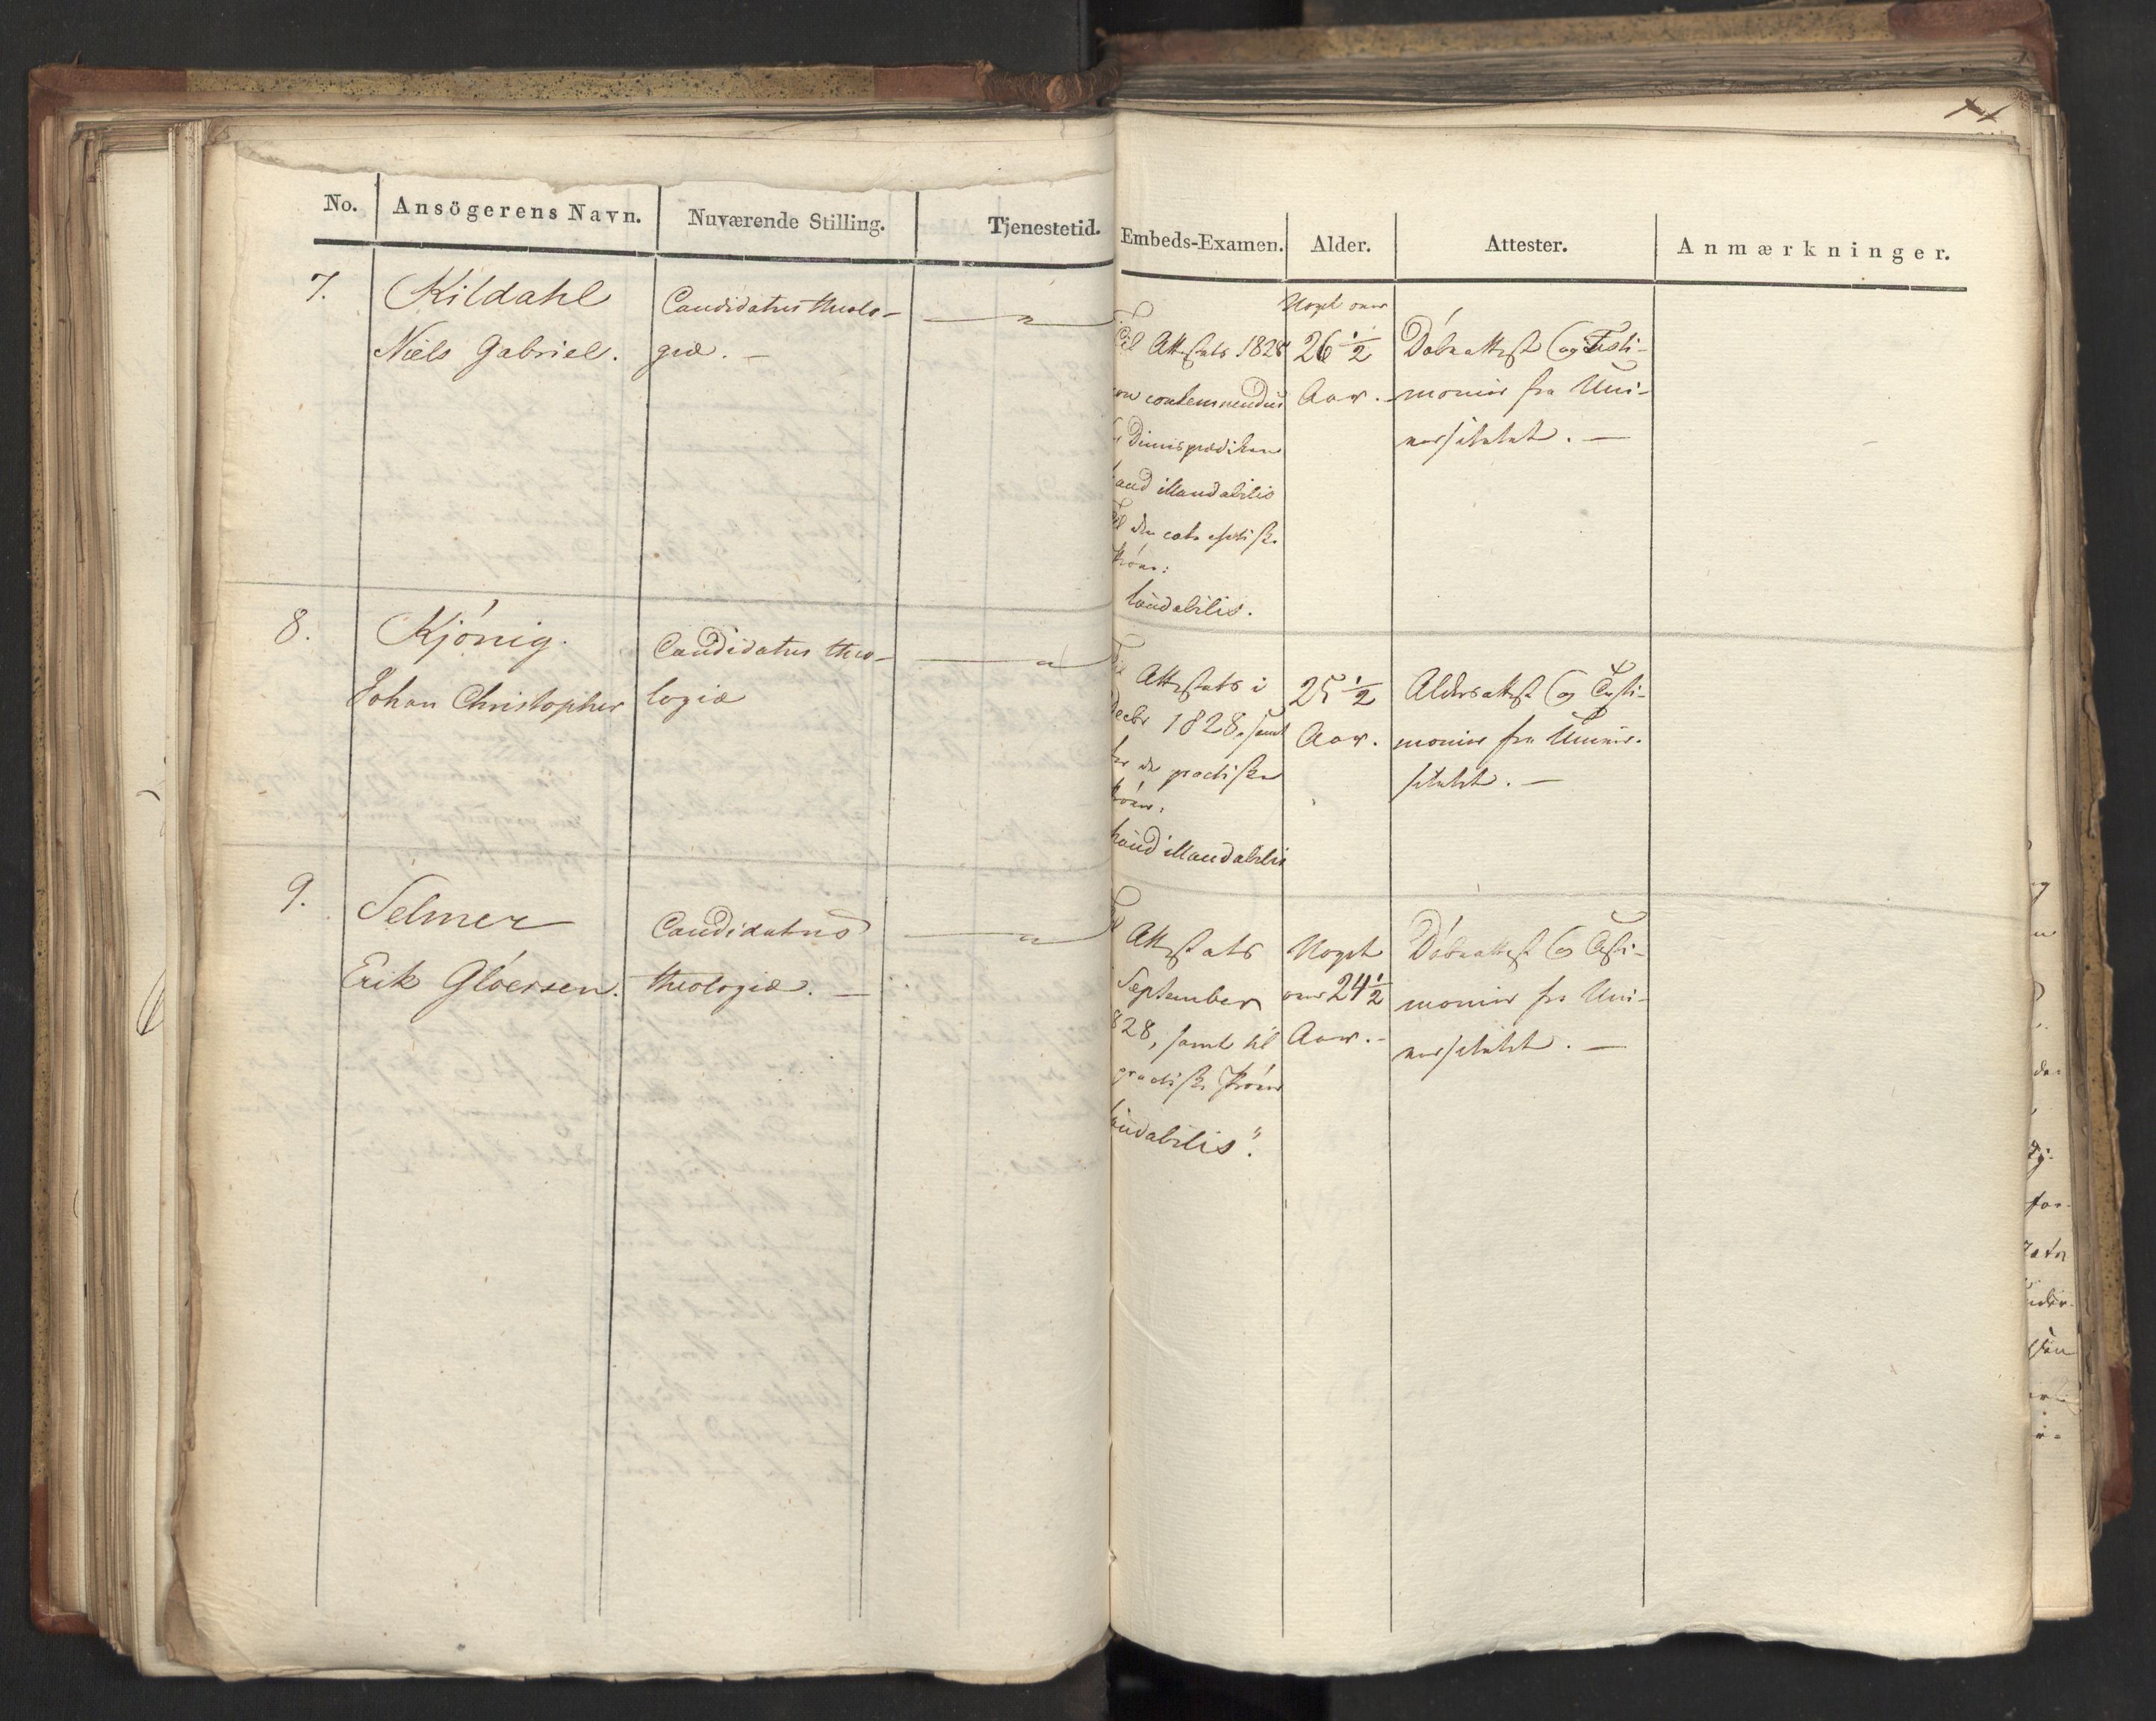 No. Ansögerens Navn. Nuværende Stilling. Tjenestetid. Embeds-Examen. Alder. Attester. Anmærkninger.
7.
Kildahl
Niels Gabriel.
Candidatus theolo-
giæ. —
— " —
Til Attestats 1828
non contemnendus
Dimisprædiken
haud illaudabilis
Til den catechetiske
Prøve:
laudabilis.
Noget over
26 1/2
Aar.
Døbeattest og Testi-
monier fra Uni-
versitetet. —
8.
Kjønig.
Johan Christopher
Candidatus theo-
logiæ
— " —
Til Attestats i
Decbr 1828, samt
for de practiske
Prøver:
haud illaudabilis
25 1/2
Aar.
Aldersattest og Testi-
monier fra Univer-
sitetet. —
9.
Selmer
Erik Gløersen.
Candidatus
theologiæ. —
— " —
Til Attestats
September
828, samt til
practiske Prøver
laudabilis".
Noget
over 24 1/2
Aar. -
Døbeattest og Testi-
monier fra Uni-
versitetet. —